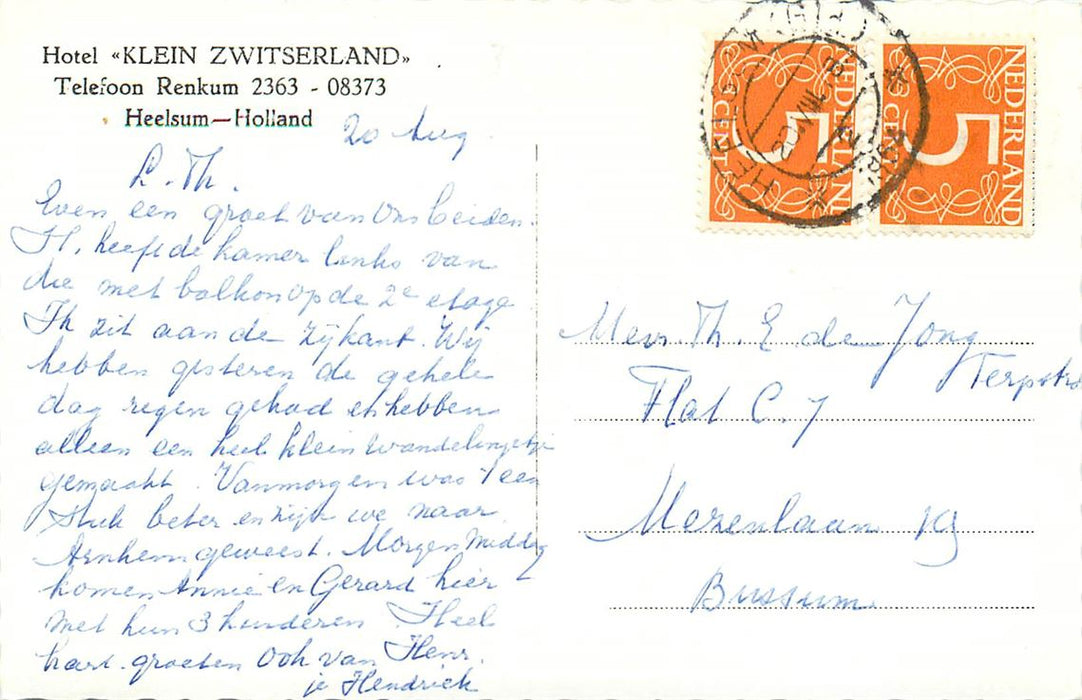 Hotel «KLEIN ZWITSERLAND»
Telefoon Renkum 2363 - 08373
Heelsum—Holland
20 Aug
L. Th.
Even een groet van ons beiden.
H. heeft de kamer links van
die met balkon op de 2e etage
Ik zit aan de zijkant. Wij
hebben gisteren de gehele
dag regen gehad en hebben
alleen een heel klein wandelingetje
gemaakt. Vanmorgen was 't een
stuk beter en zijn we naar
Arnhem geweest. Morgen middag
komen Annie en Gerard hier
met hun 3 kinderen. Heel
hart. groeten ook van Henr.
je Hendrick
NEDERLAND
5
CENT
NEDERLAND
5
CENT
HEELSUM
Mevr. Th. E de Jong
Terpstra
Flat C. 7
Mezenlaan 19
Bussum